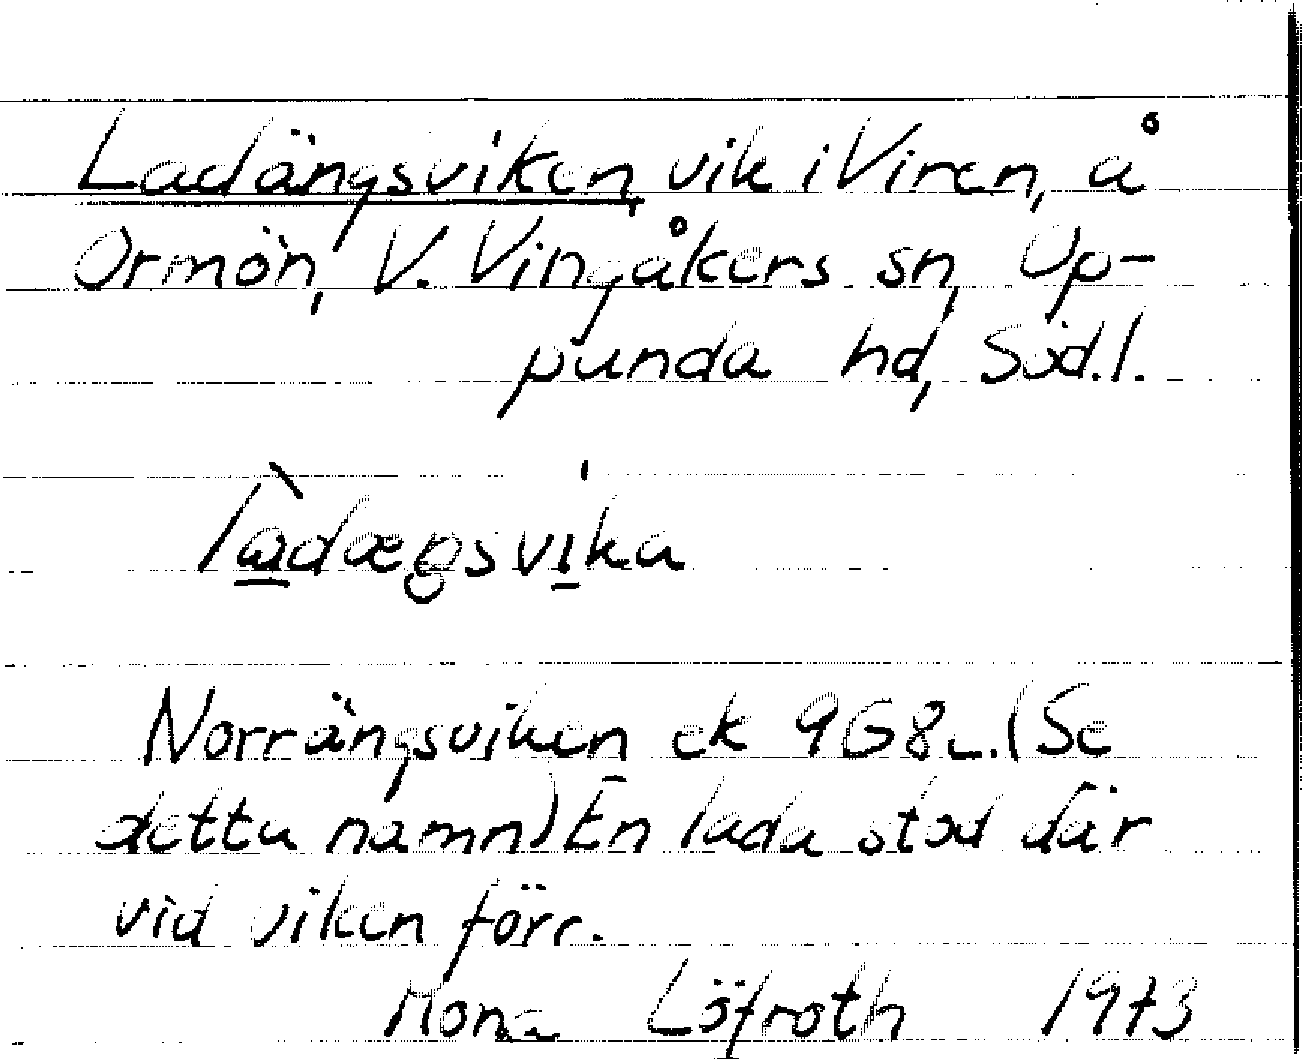 Ladängsviken, vik i Viren, å
Ormön, V. Vingåkers sn, Op-
punda hd, Söd.l.
làdæŋsvika
Norrängsviken ek 9G8c. (Se
detta namn) En lada stod där
vid viken förr.
Mona Löfroth 1973